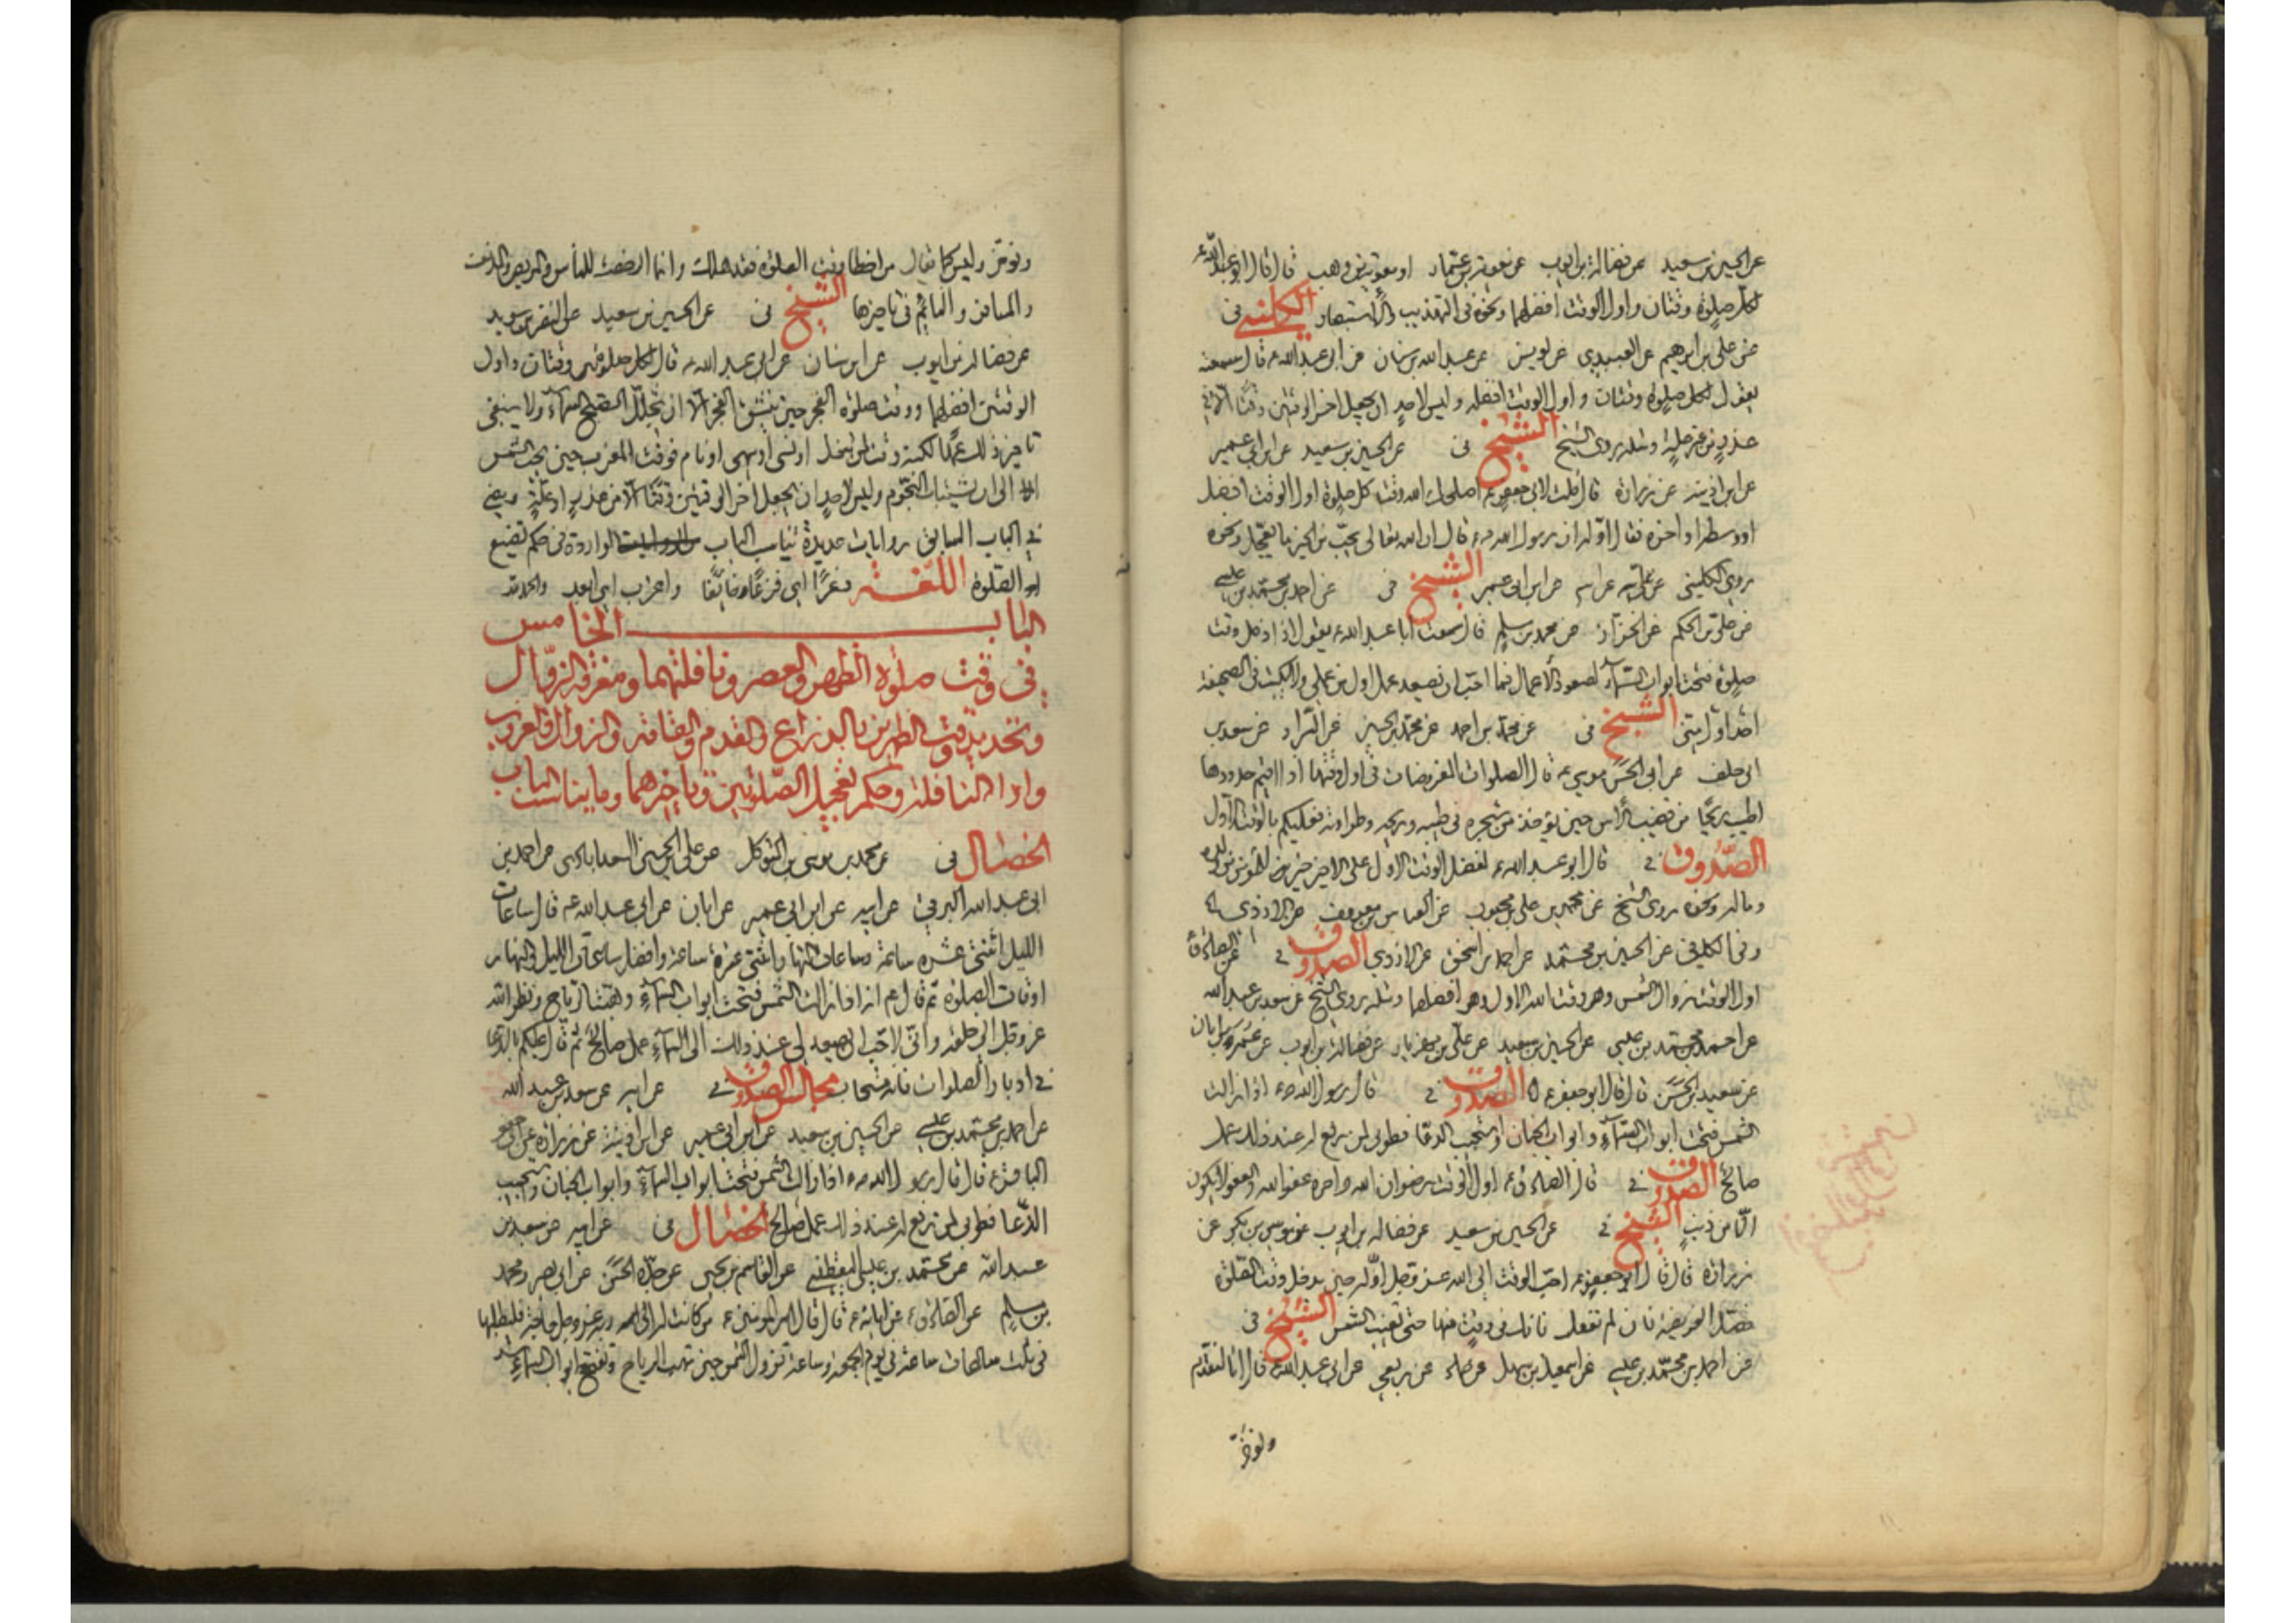 عن الحسين بن سعيد عن فضالة بن ايوب عن معوية بن عمار او معوية بن وهب قال قال ابو عبد الله ع
لكل صلوة وقتان واول الوقت افضلهما ونحوه فى التهذيب والاستبصار الكلينى فى
عن على بن ابرهيم عن العبيدى عن يونس عن عبد الله بن سنان عن ابى عبد الله ع قال سمعته
يقول لكل صلوة وقتان واول الوقت افضله وليس لاحد ان يجعل اخر الوقتين وقتا الا فى
عذر من غير علة ومثله روى الشيخ الشيخ فى عن الحسين بن سعيد عن ابن ابى عمير
عن ابن اذينه عن زرارة قال قلت لابى جعفر ع اصلحك الله وقت كل صلوة اول الوقت افضل
او وسطه او اخره فقال اوله ان رسول الله ص قال ان الله تعالى يحب من الخير ما يعجل ونحوه
روى الكلينى عن على عن ابيه عن ابن ابى عمير الشيخ فى عن احمد بن محمد بن عيسى
عن على بن الحكم عن الخزاز عن محمد بن مسلم قال سمعت ابا عبد الله ع يقول اذا دخل وقت
صلوة فتحت ابواب السماء لصعود الاعمال فما احب ان يصعد عمل اول من عملى ولا يكتب فى الصحيفة
احد اول منى الشيخ فى عن محمد بن احمد عن محمد بن الحسين عن سعد بن
ابى خلف عن ابى الحسن موسى ع قال الصلوات المفروضات فى اول وقتها اذا اقيم حدودها
اطيب ريحا من قضيب الاس حين يؤخذ من شجره فى طيبه وريحه وطراوته فعليكم بالوقت الاول
الصدوق فى قال ابو عبد الله ع لفضل الوقت الاول على الاخير خير للمؤمن من ولده
وماله ونحوه روى الشيخ عن محمد بن على بن محبوب عن العباس بن معروف عن الازدى
وفى الكلينى عن الحسين بن محمد عن احمد بن اسحق عن الازدى الصدوق فى عن الصادق
اول الوقت زوال الشمس وهو وقت الله الاول وهو افضلهما ومثله روى الشيخ عن سعد بن عبد الله
عن احمد بن محمد بن عيسى عن الحسين بن سعيد عن على بن مهزيار عن فضالة بن ايوب عن عمر بن ابان
عن سعيد بن الحسن قال قال ابو جعفر ع الصدوق فى قال رسول الله ص اذا زالت
الشمس فتحت ابواب السماء وابواب الجنان واستجيب الدعا فطوبى لمن رفع له عند ذلك عمل
صالح الصدوق فى قال الصادق ع اول الوقت رضوان الله واخره عفو الله والعفو لا يكون
الا من ذنب الشيخ فى عن الحسين بن سعيد عن فضاله بن ايوب عن موسى بن بكر عن
زرارة قال قال ابو جعفر ع احب الوقت الى الله عز وجل اوله حين يدخل وقت الصلوة
فصل الفريضة فان لم تفعل فانك فى وقت منها حتى تغيب الشمس الشيخ فى
عن احمد بن محمد بن عيسى عن اسمعيل بن سهل عن حماد عن ربعى عن ابى عبد الله قال انا لنقدم
ونؤخر
ونؤخر وليس كما يقال من اخطأ وقت الصلوة فقد هلك وانما الرخصة للناسى والمريض والمدنف
والمسافر والنائم فى تاخيرها الشيخ فى عن الحسين بن سعيد عن النضر بن سويد
عن فضالة بن ايوب عن ابن سنان عن ابى عبد الله ع قال لكل صلوة وقتان واول
الوقتين افضلهما ووقت صلوة الفجر حين ينشق الفجر الا ان يتجلل الصبح السماء ولا ينبغى
تاخير ذلك عمدا لكنه وقت لمن شغل او نسى او سهى او نام فوقت المغرب حين تجب الشمس
الى ان تشتبك النجوم وليس لاحد ان يجعل اخر الوقتين وقتا الا من عذر او علة ويجئ
فى الباب السابق روايات عديدة تناسب الباب الواردة فى حكم تضييع
الصلوة اللغة فزعا خائفا
الباب الخامس
فى وقت صلوة الظهر والعصر ونافلتهما ومعرفة الزوال
وتحديد وقت الظهرين بالذراع والقدم والقامة والزوال
وادا النافلة وحكم تعجيل الصلوتين وتاخيرهما وما يناسب الباب
الخصال فى عن محمد بن موسى بن المتوكل عن على بن الحسين السعدابادى عن احمد بن
ابى عبد الله البرقى عن ابيه عن ابن ابى عمير عن ابان عن ابى عبد الله ع قال ساعات
الليل اثنتى عشره ساعة وساعات النهار اثنتى عشرة ساعة وافضل ساعات الليل والنهار
اوقات الصلوة ثم قال ع انه اذا زالت الشمس فتحت ابواب السماء وهبت الرياح ونظر الله
عز وجل الى خلقه وانى لاحب ان يصعد لى عند ذلك الى السماء عمل صالح ثم قال عليكم بالدعا
فى ادبار الصلوات فانه مستجاب مجالس الصدوق فى عن ابيه عن سعد بن عبد الله
عن احمد بن محمد بن عيسى عن الحسين بن سعيد عن ابن ابى عمير عن ابن اذينة عن زرارة عن ابى جعفر
الباقر ع قال قال رسول الله ص اذا زالت الشمس فتحت ابواب السماء وابواب الجنان واستجيب
الدعا فطوبى لمن رفع له عند ذلك عمل صالح الخصال فى عن ابيه عن سعد بن
عبد الله عن محمد بن عيسى اليقطينى عن القاسم بن يحيى عن جده الحسن عن ابى بصير ومحمد
بن مسلم عن الصادق ع عن ابائه ع قال قال امير المومنين ع من كانت له الى ربه عز وجل حاجة فليطلبها
فى ثلث ساعات ساعة فى يوم الجمعة وساعة تزول الشمس حين تهب الرياح وتفتح ابواب السماء